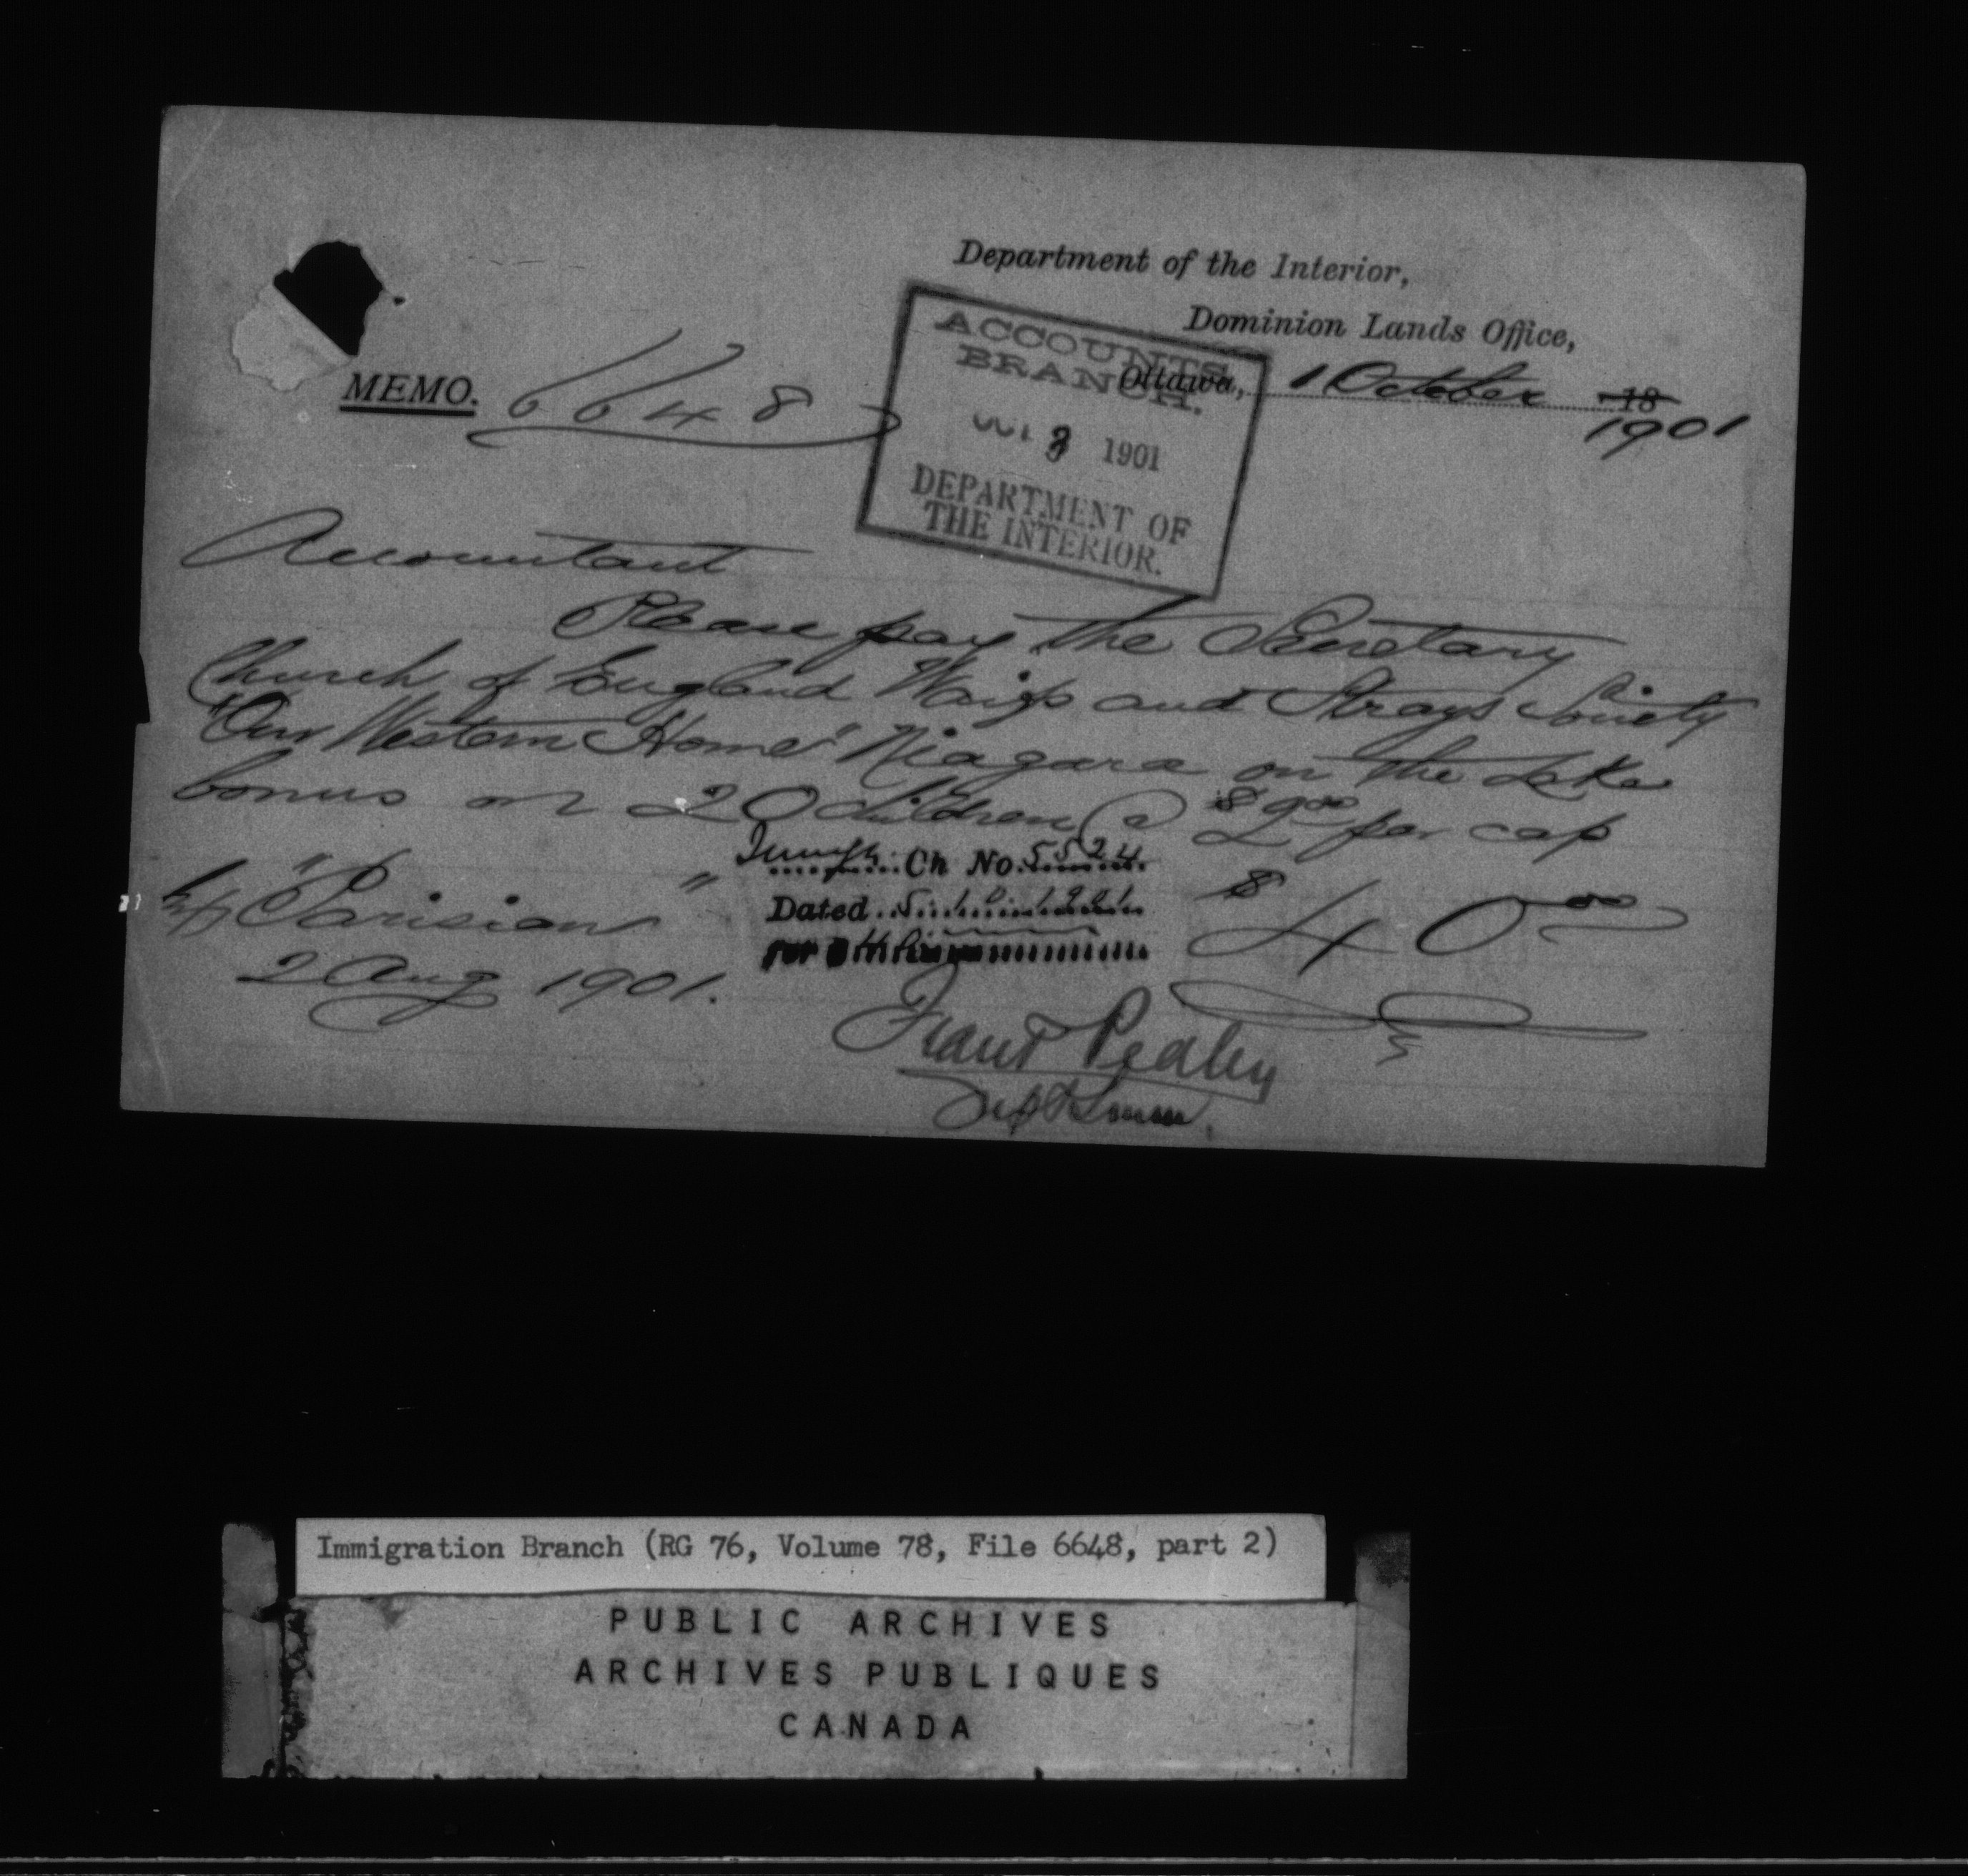 Department of the Interior,
Dominion Lands Office,
Ottawa, 1 October 18
1901
MEMO. 6648
ACCOUNTS
BRANCH.
OCT 3 1901
DEPARTMENT OF
THE INTERIOR.
Accountant
Please pay the Secretary
Church of England Waifs and Strays Society
"Our Western Home" Niagara on the Lake
bonus on 20 children @ $2.00 per cap
Ch No. 5524
Dated 5.10.1901
per
S/S "Parisian"
$40.00
2 Aug 1901.
Frank Pedley
Supt Imm.
Immigration Branch (RG 76, Volume 78, File 6648, part 2)
PUBLIC ARCHIVES
ARCHIVES PUBLIQUES
CANADA